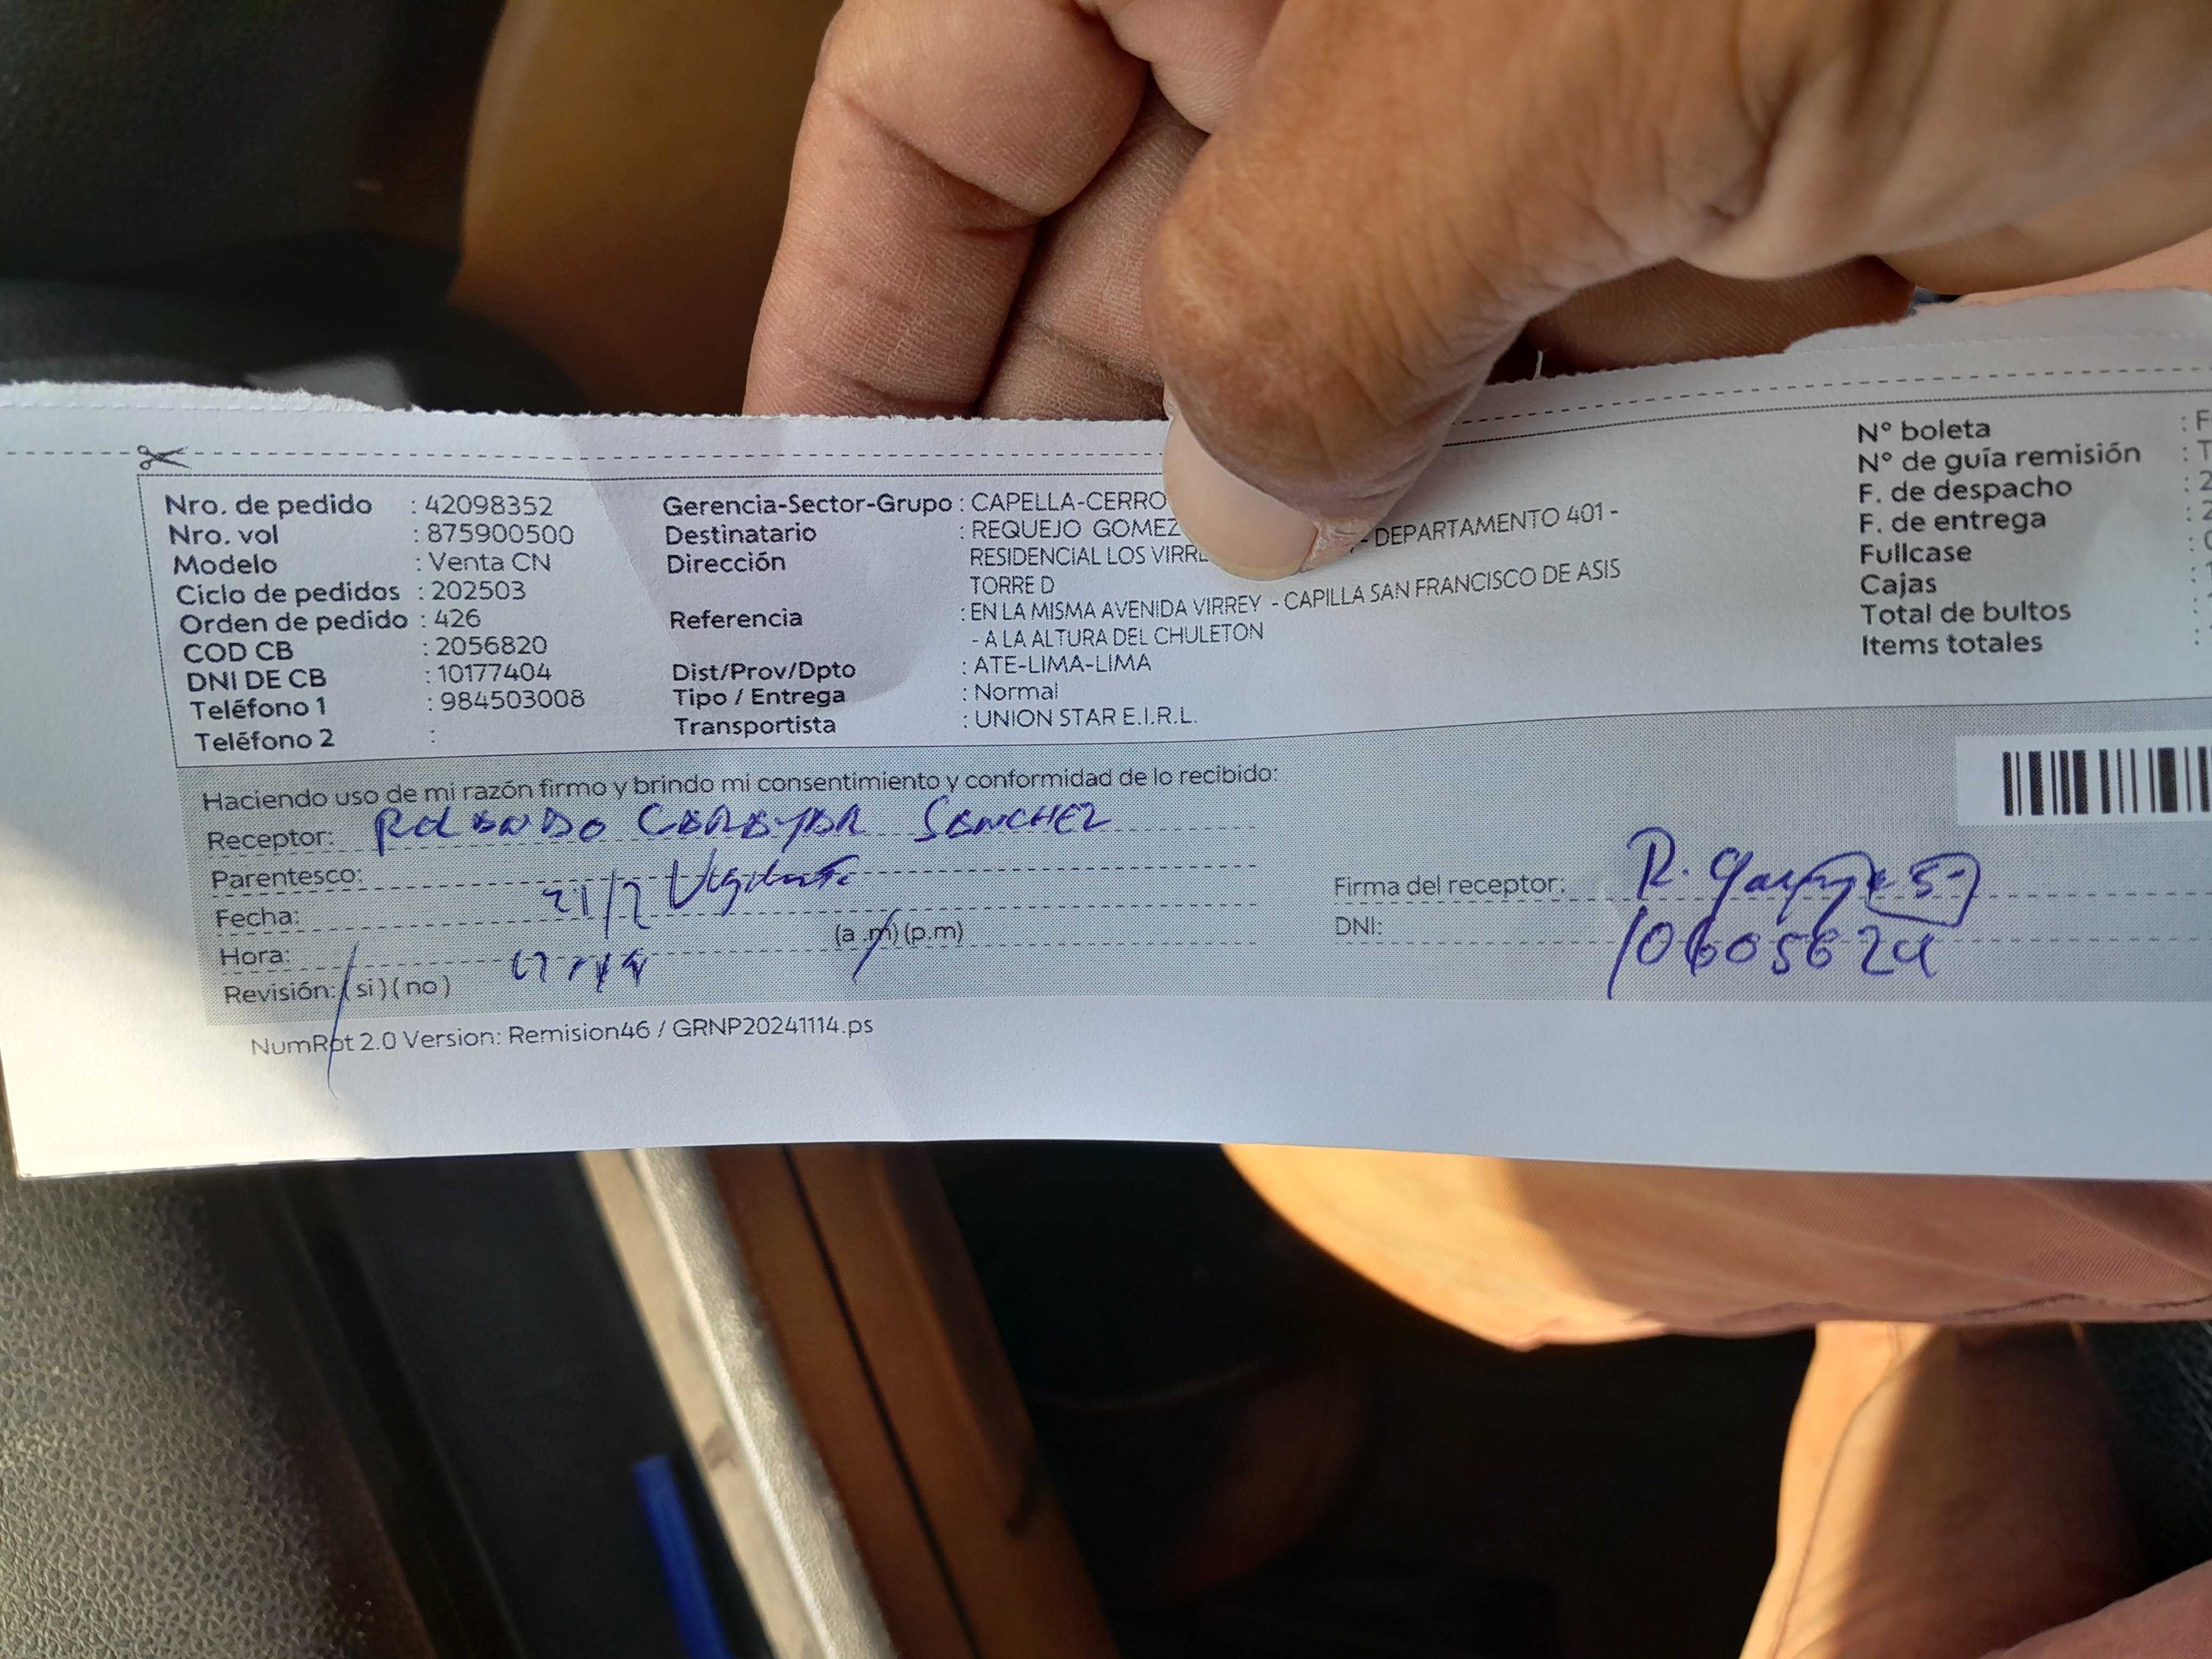 Nro. de pedido : 42098352
Nro. vol : 875900500
Modelo : Venta CN
Ciclo de pedidos : 202503
Orden de pedido : 426
COD CB : 2056820
DNI DE CB : 10177404
Teléfono 1 : 984503008
Teléfono 2 :
Gerencia-Sector-Grupo : CAPELLA-CERRO
Destinatario : REQUEJO GOMEZ
Dirección RESIDENCIAL LOS VIRRE - DEPARTAMENTO 401 -
TORRE D
Referencia : EN LA MISMA AVENIDA VIRREY - CAPILLA SAN FRANCISCO DE ASIS
- A LA ALTURA DEL CHULETON
Dist/Prov/Dpto : ATE-LIMA-LIMA
Tipo / Entrega : Normal
Transportista : UNION STAR E.I.R.L.
N° boleta : F
N° de guía remisión : T
F. de despacho : 2
F. de entrega : 2
Fullcase :
Cajas :
Total de bultos :
Items totales :
Haciendo uso de mi razón firmo y brindo mi consentimiento y conformidad de lo recibido:
Receptor: ROLANDO SANCHEZ
Parentesco: Vigilante
Fecha: 21/2
Hora: (a .m) (p.m)
Revisión: (si) (no)
Firma del receptor: R.
DNI: 10605624
NumRot 2.0 Version: Remision46 / GRNP20241114.ps